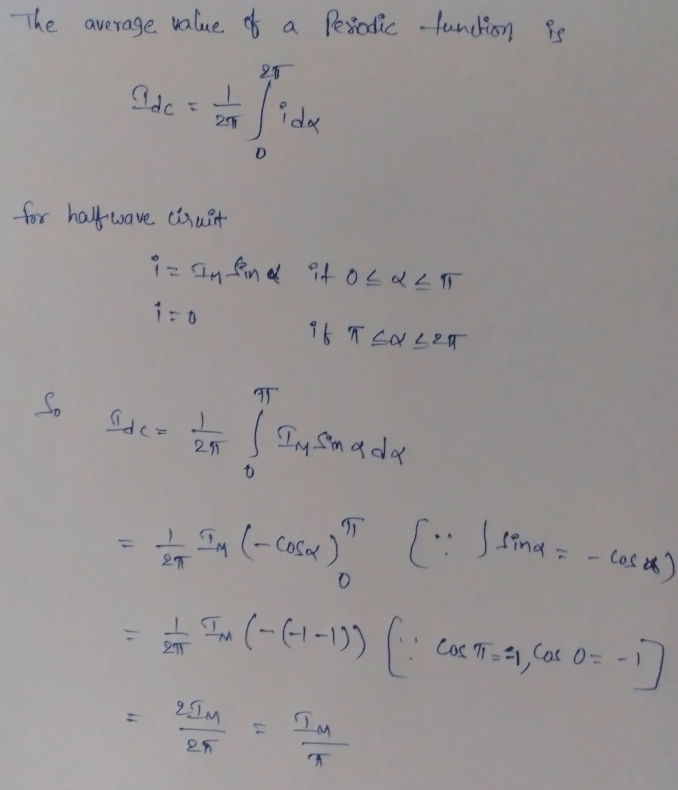 The average value of a Periodic function is
Idc = 1/2π ∫₀^2π i dα
for half wave ciruit
i = I_M sin α if 0 ≤ α ≤ π
i = 0 if π ≤ α ≤ 2π
So Idc = 1/2π ∫₀^π I_M sin α dα
= 1/2π I_M (-cosα)₀^π (∵ ∫ sinα = - cos α)
= 1/2π I_M (-(-1-1)) [∵ cos π = -1, cos 0 = -1]
= 2I_M/2π = I_M/π